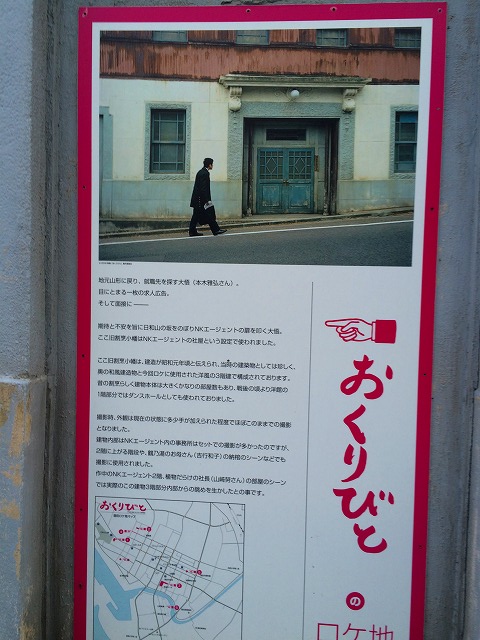 地元山形に戻り、就職先を探す大悟(本木雅弘さん)。
目にとまる一枚の求人広告。
そして面接に ———
期待と不安を胸に日和山の坂をのぼりNKエージェントの扉を叩く大悟。
ここ旧割烹小幡はNKエージェントの社屋という設定で使われました。
ここ旧割烹小幡は、建造が昭和元年頃と伝えられ、当時の建築物としては珍しく、
奥の和風建造物と今回ロケに使用された洋風の3階建で構成されております。
昔の割烹らしく建物本体は大きくかなりの部屋数もあり、戦後の頃より洋館の
1階部分ではダンスホールとしても使われておりました。
撮影時、外観は現在の状態に多少手が加えられた程度でほぼこのままでの撮影
となりました。
建物内部はNKエージェント内の事務所はセットでの撮影が多かったのですが、
2階に上がる階段や、鶴乃湯のお母さん(吉行和子)の納棺のシーンなどでも
撮影に使用されました。
作中のNKエージェント2階、植物だらけの社長(山﨑努さん)の部屋のシーン
では実際のこの建物3階部分内部からの眺めを生かしたとの事です。
おくりびと
おくりびと
の
ロケ地